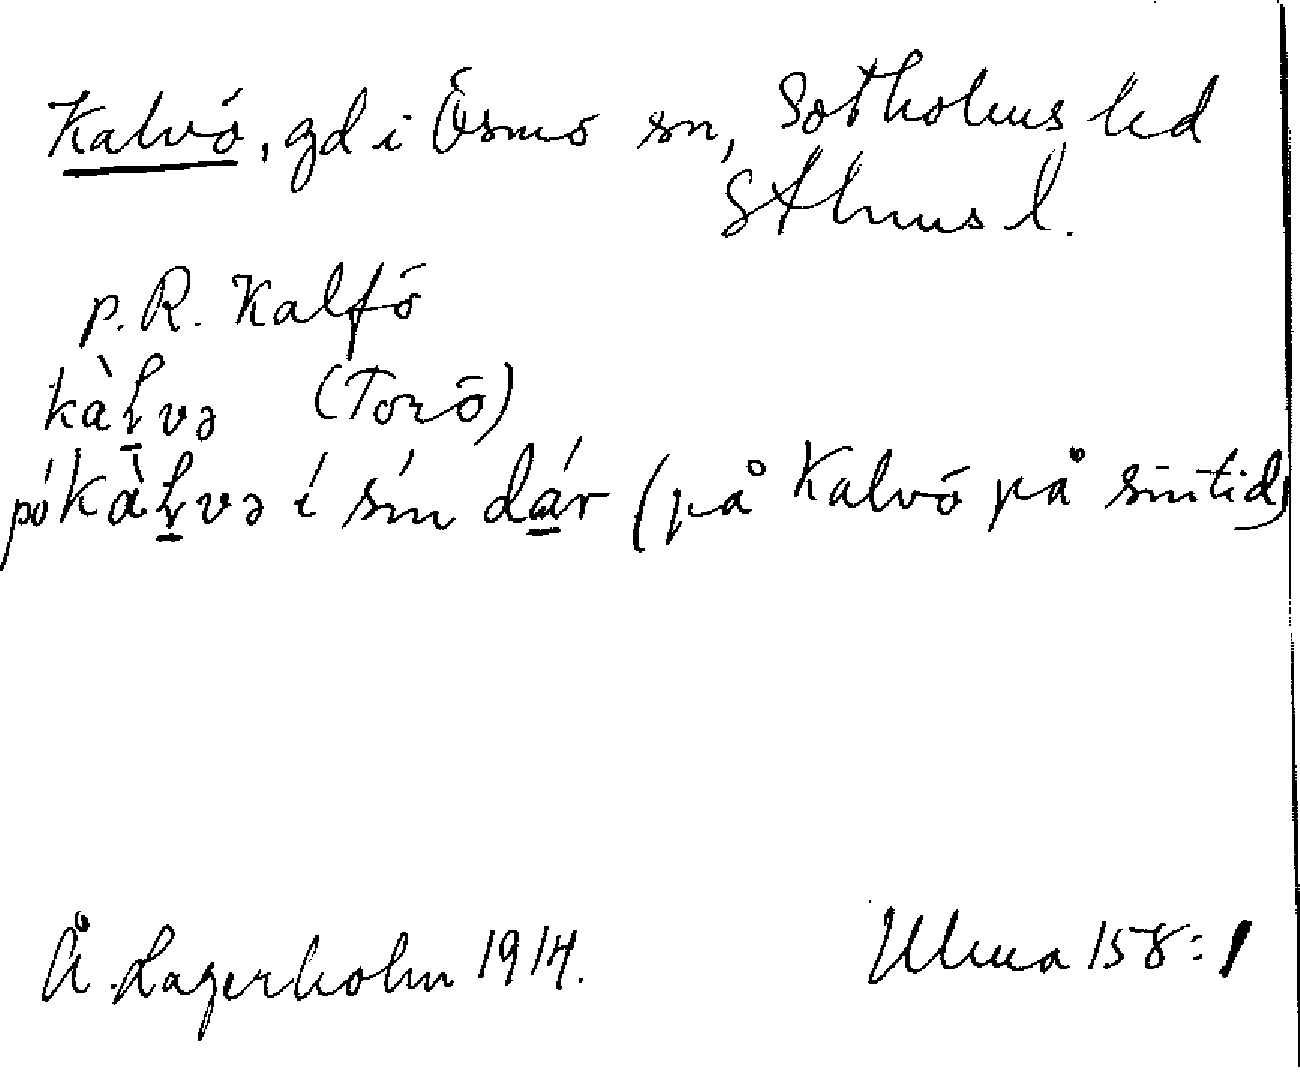 Kalvö, gd i Ösmo sn, Sotholms hd
Sthms l.
p. R. Kalfö
kàḷvə (Torö)
pó kàḷvə í sín dár (på Kalvö på sin tid)
Å. Lagerholm 1914. Ulma 158:1